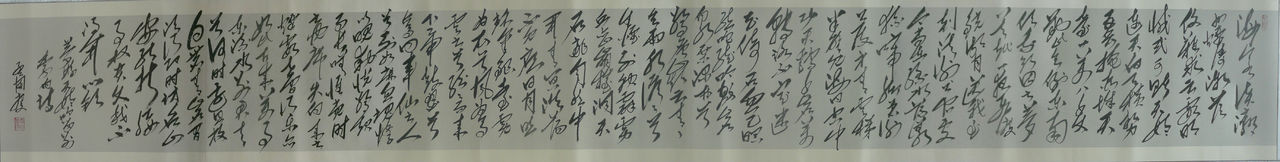 海客谈瀛洲
烟涛微茫
信难求越人语
天姥云霞明
灭或可睹天姥
连天向天横势
拔五岳掩赤城天
台一万八千丈
对此欲倒东南
倾我欲因之梦
吴越一夜飞度
镜湖月湖月照
我影送我至
剡溪谢公宿处
今尚在渌水荡漾
清猿啼脚著谢公
屐身登青云梯
半壁见海日空中
闻天鸡千岩万
转路不定迷
花倚石忽已暝
熊咆龙吟殷岩
泉栗深林兮惊
层巅云青青兮
欲雨水澹澹兮
生烟列缺霹雳
丘峦崩摧洞天
石扉訇然中
开青冥浩荡
不见底日月照
耀金银台霓
为衣兮风为马
云之君兮纷纷而来
下虎鼓瑟兮鸾
回车仙之人
兮列如麻忽魂悸
以魄动恍惊起
而长嗟惟觉时
之枕席失向来
之烟霞世间行乐
亦如此古来万事
东流水别君去
兮何时还且放
白鹿青崖间
须行即骑访名山
安能摧眉折腰
事权贵使我不
得开心颜
梦游天姥吟留别
李白诗